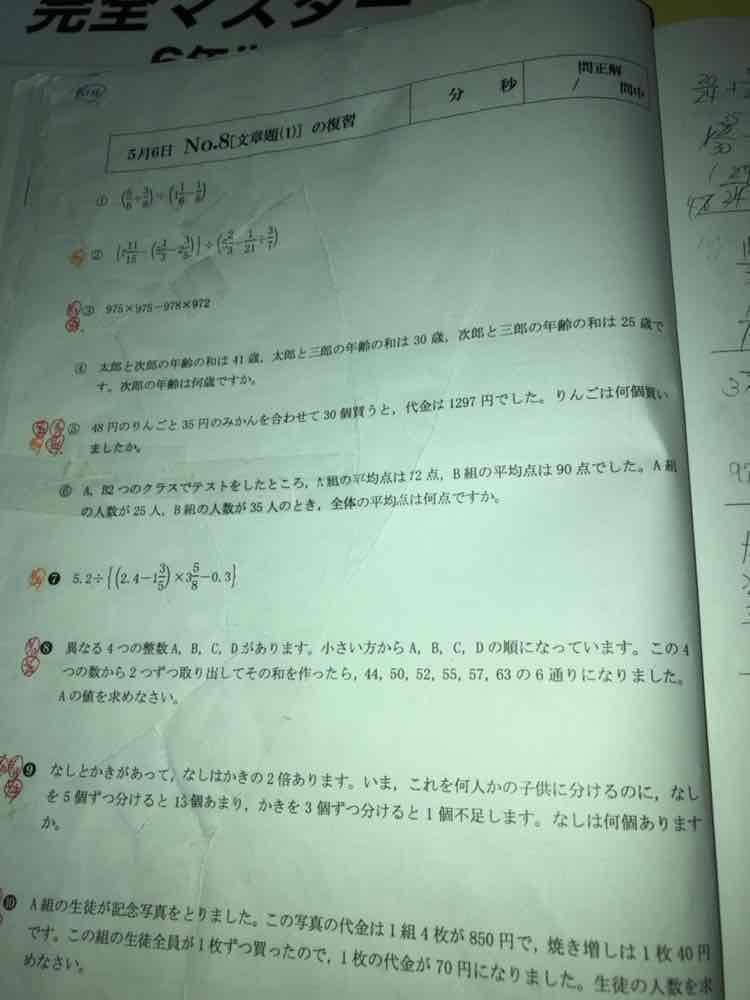 完全マスター
5月6日 No.8[文章題(1)] の復習
分 秒
問正解
/ 問中
①
②
③ 975×975−978×972
④ 太郎と次郎の年齢の和は41歳，太郎と三郎の年齢の和は30歳，次郎と三郎の年齢の和は25歳で
す。次郎の年齢は何歳ですか。
⑤ 48円のりんごと35円のみかんを合わせて30個買うと，代金は1297円でした。りんごは何個買い
ましたか。
⑥ A，B2つのクラスでテストをしたところ，A組の平均点は72点，B組の平均点は90点でした。A組
の人数が25人，B組の人数が35人のとき，全体の平均点は何点ですか。
❼ 5.2÷{(2.4−1 3/5)×3 5/8−0.3}
❽ 異なる4つの整数A，B，C，Dがあります。小さい方からA，B，C，Dの順になっています。この4
つの数から2つずつ取り出してその和を作ったら，44，50，52，55，57，63の6通りになりました。
Aの値を求めなさい。
❾ なしとかきがあって，なしはかきの2倍あります。いま，これを何人かの子供に分けるのに，なし
を5個ずつ分けると13個あまり，かきを3個ずつ分けると1個不足します。なしは何個あります
か。
❿ A組の生徒が記念写真をとりました。この写真の代金は1組4枚が850円で，焼き増しは1枚40円
です。この組の生徒全員が1枚ずつ買ったので，1枚の代金が70円になりました。生徒の人数を求
めなさい。